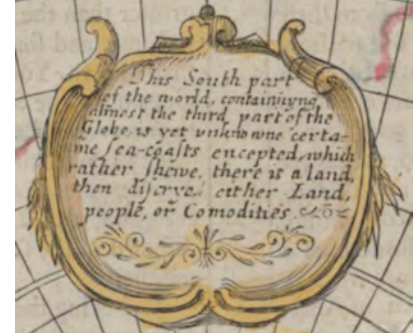 This South part
of the world, containiyng
almost the third part of the
Globe, is yet vnknowne certa=
ine sea=coasts encepted, which
rather shewe, there is a land,
then discrye either Land,
people, or Comodities.